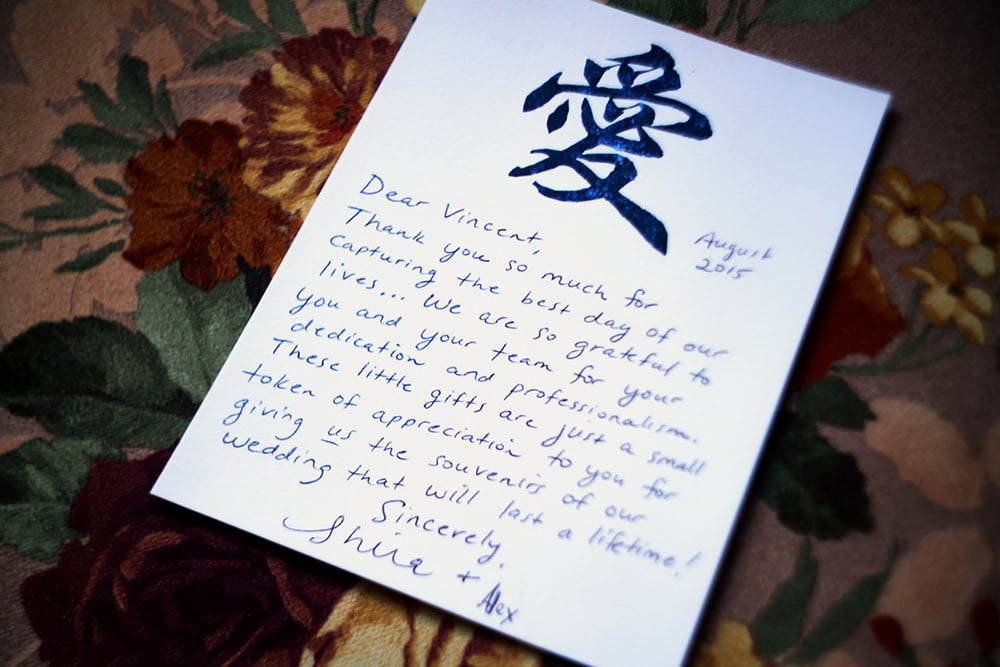 愛
August
2015
Dear Vincent,
Thank you so much for
capturing the best day of our
lives... We are so grateful to
you and your team for your
dedication and professionalism.
These little gifts are just a small
token of appreciation to you for
giving us the souvenirs of our
wedding that will last a lifetime!
Sincerely,
+ Alex